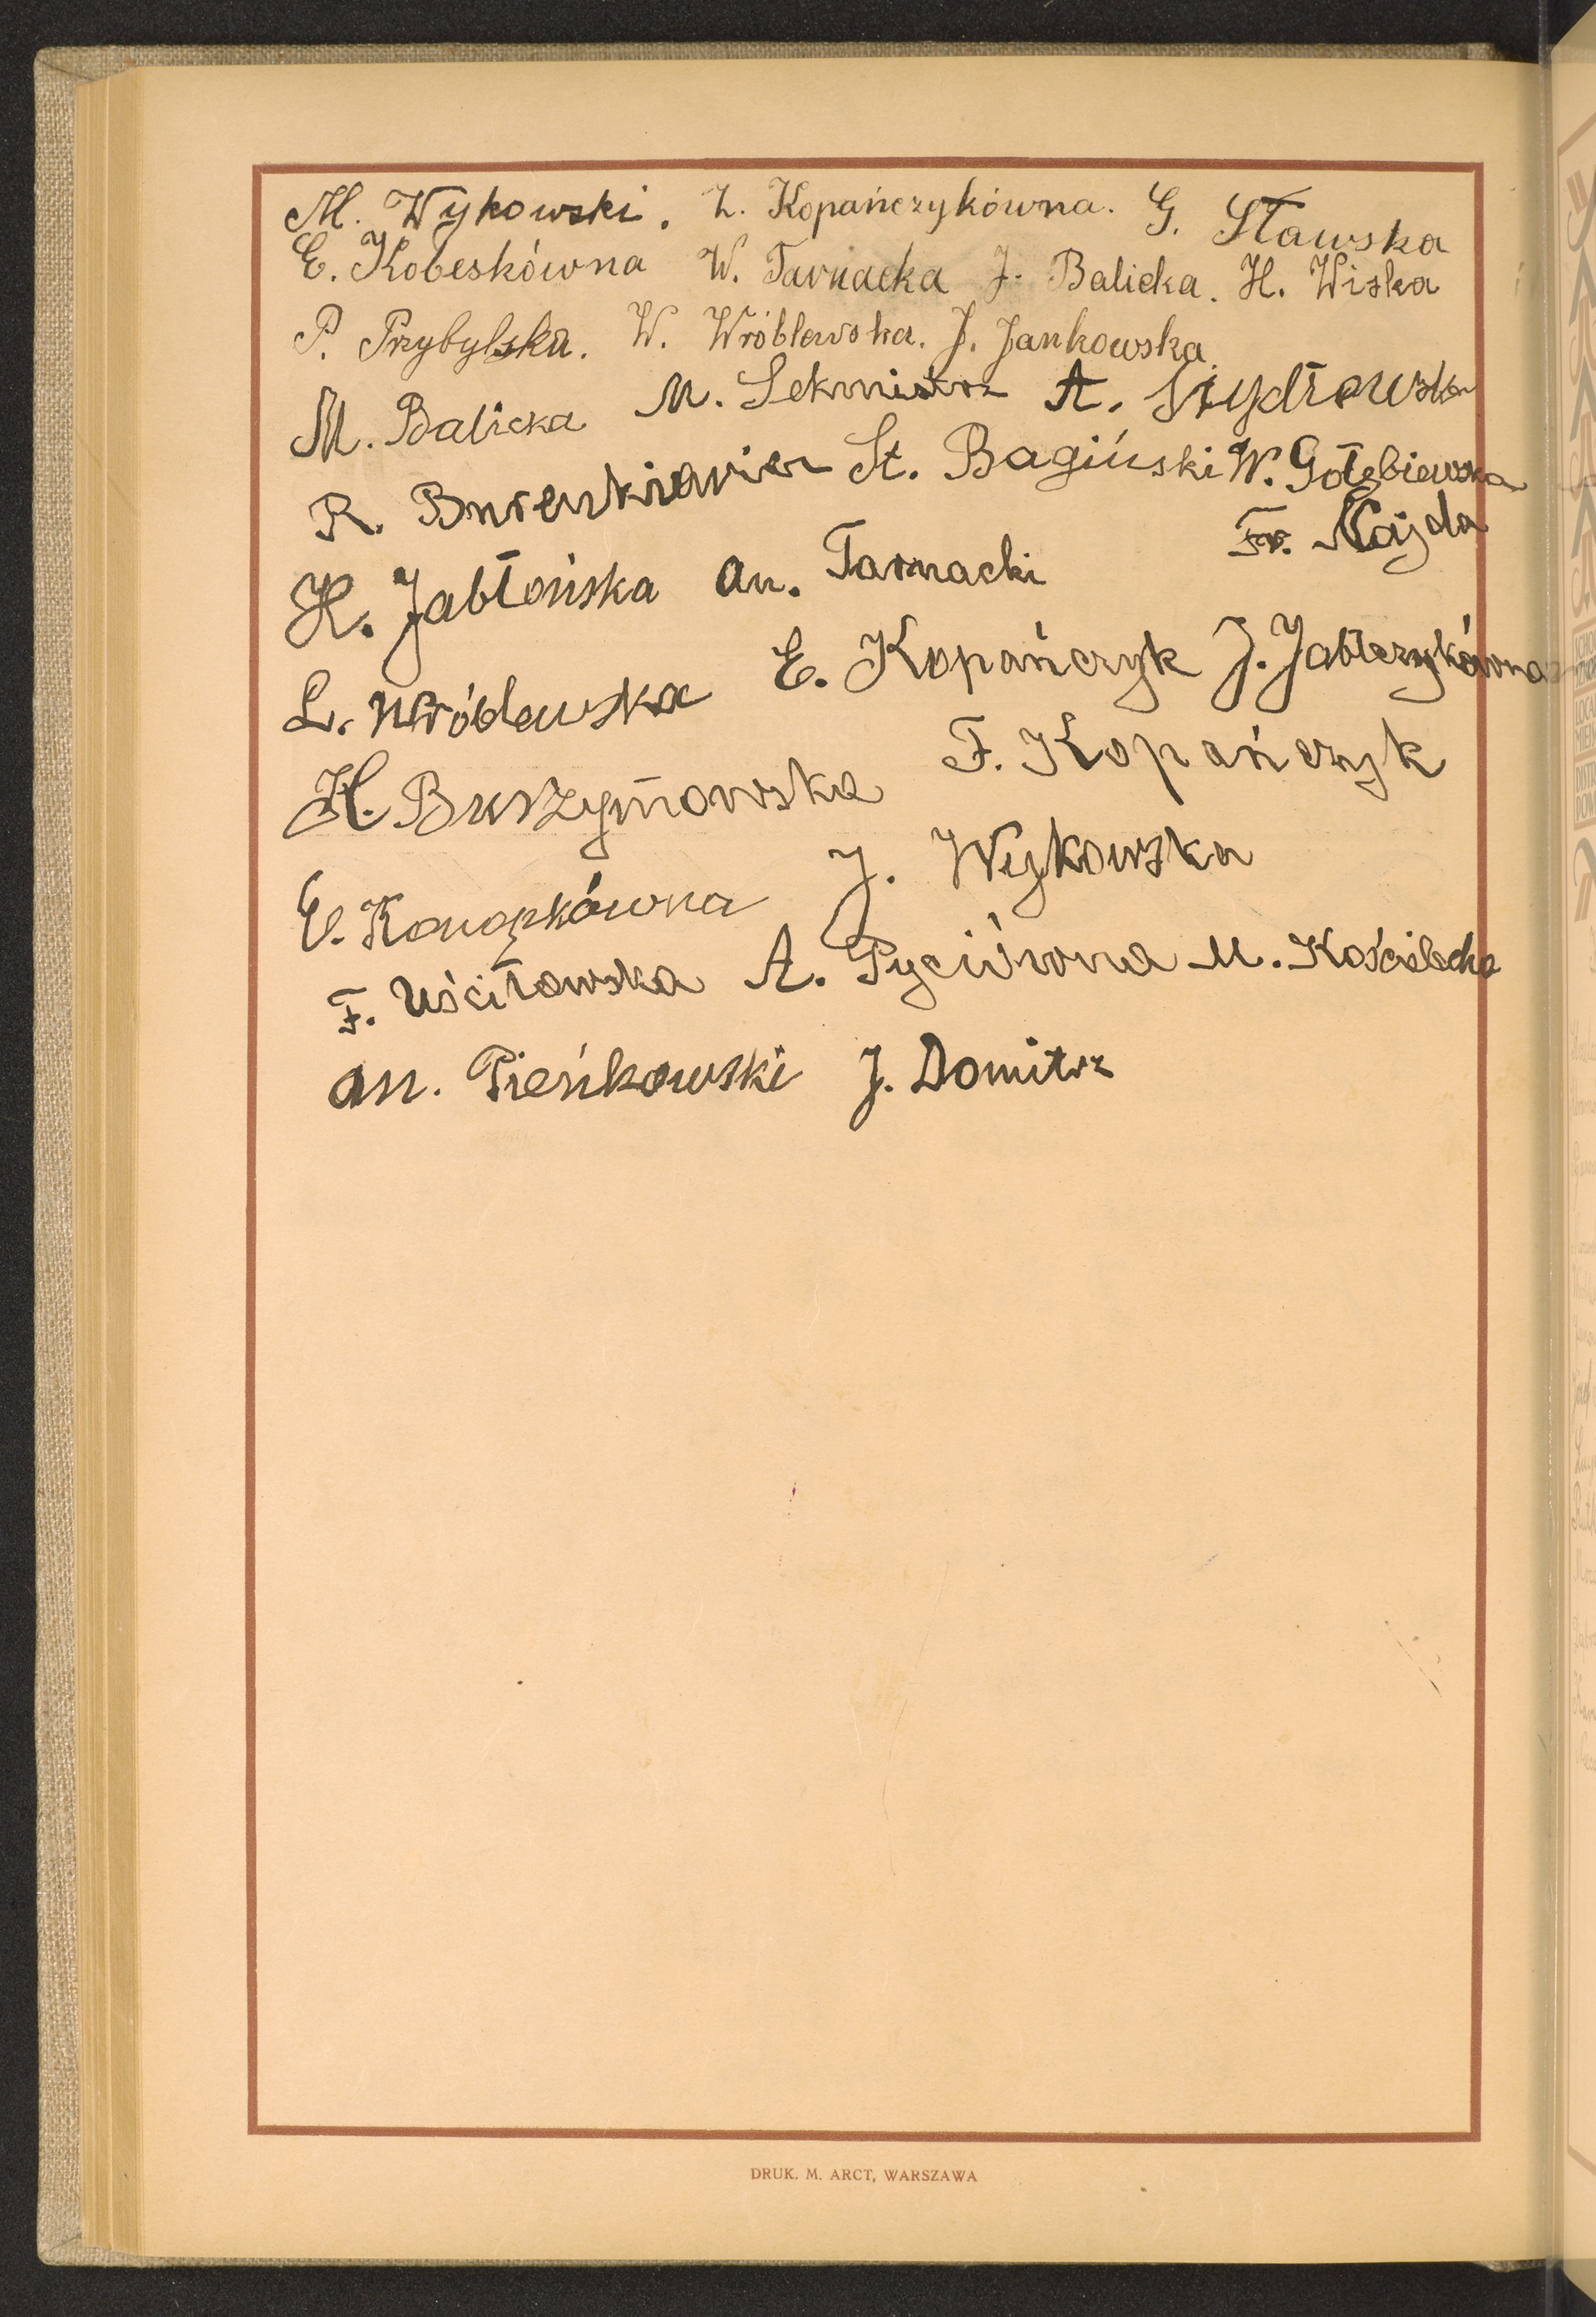 M. Wykowski. Z. Kopańczykówna. G. Sławska
E. Kobeskówna W. Tarnacka J. Balicka. H. Wiska
P. Przybylska. W. Wróblewska. J. Jankowska.
M. Balicka M. Sekmistrz A.
R. St. Bagiński W. Gołębiewska
H. Jabłońska An. Tarnacki Fr. Najda
L. Wróblewska E. Kopańczyk J.
H. Buszymowska F. Kopańczyk
E. Konopkówna J. Wykowska
F. Uściłowska A. Pyciówna M.
An. Pieńkowski J. Domitrz
DRUK. M. ARCT, WARSZAWA